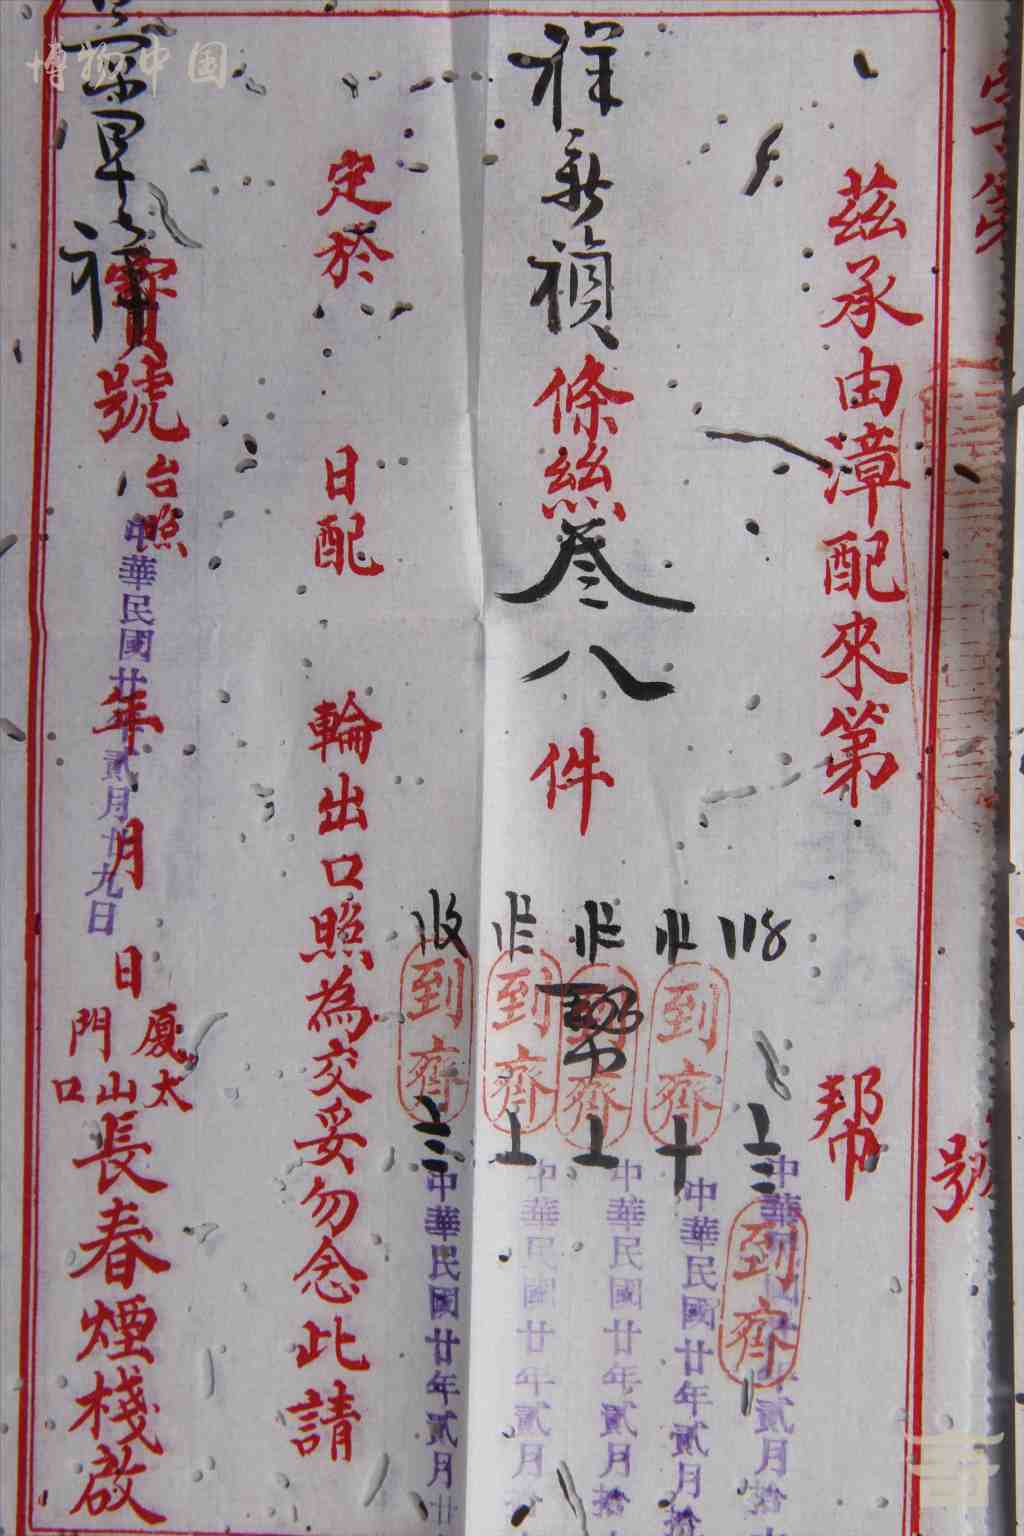 字第 號
茲承由漳配來第 幫
118
祥新禎條絲叁八件
定於 日配 輪出口照為交妥勿念此請
祥寶號台照
年 月 日
廈門太山口長春煙棧啟
到齊
到齊
到齊
到齊
到齊
中華民國廿年貳月拾
中華民國廿年貳月拾
中華民國廿年貳月拾
中華民國廿年貳月拾
中華民國廿年貳月廿
中華民國廿年貳月廿九日
博物中国